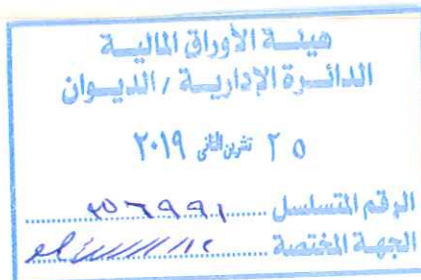 هيئة الأوراق المالية
الدائرة الإدارية / الديوان
٢٥ تشرين الثاني ٢٠١٩
الرقم المتسلسل
الجهة المختصة